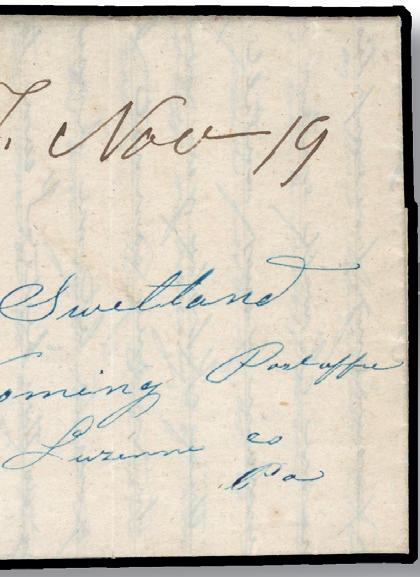 Nov 19
Swetland
oming Postoffice
Luzerne co
Pa